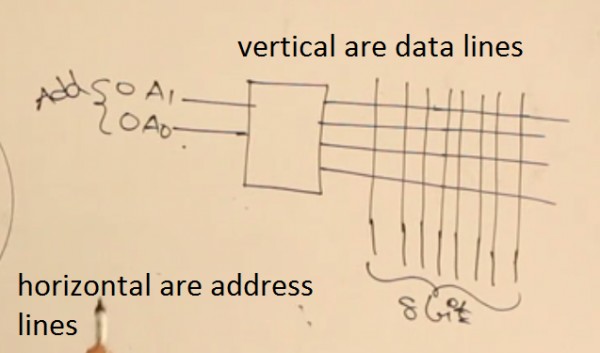 vertical are data lines
Add { 0 A1
0 A0
horizontal are address
lines
8 bits